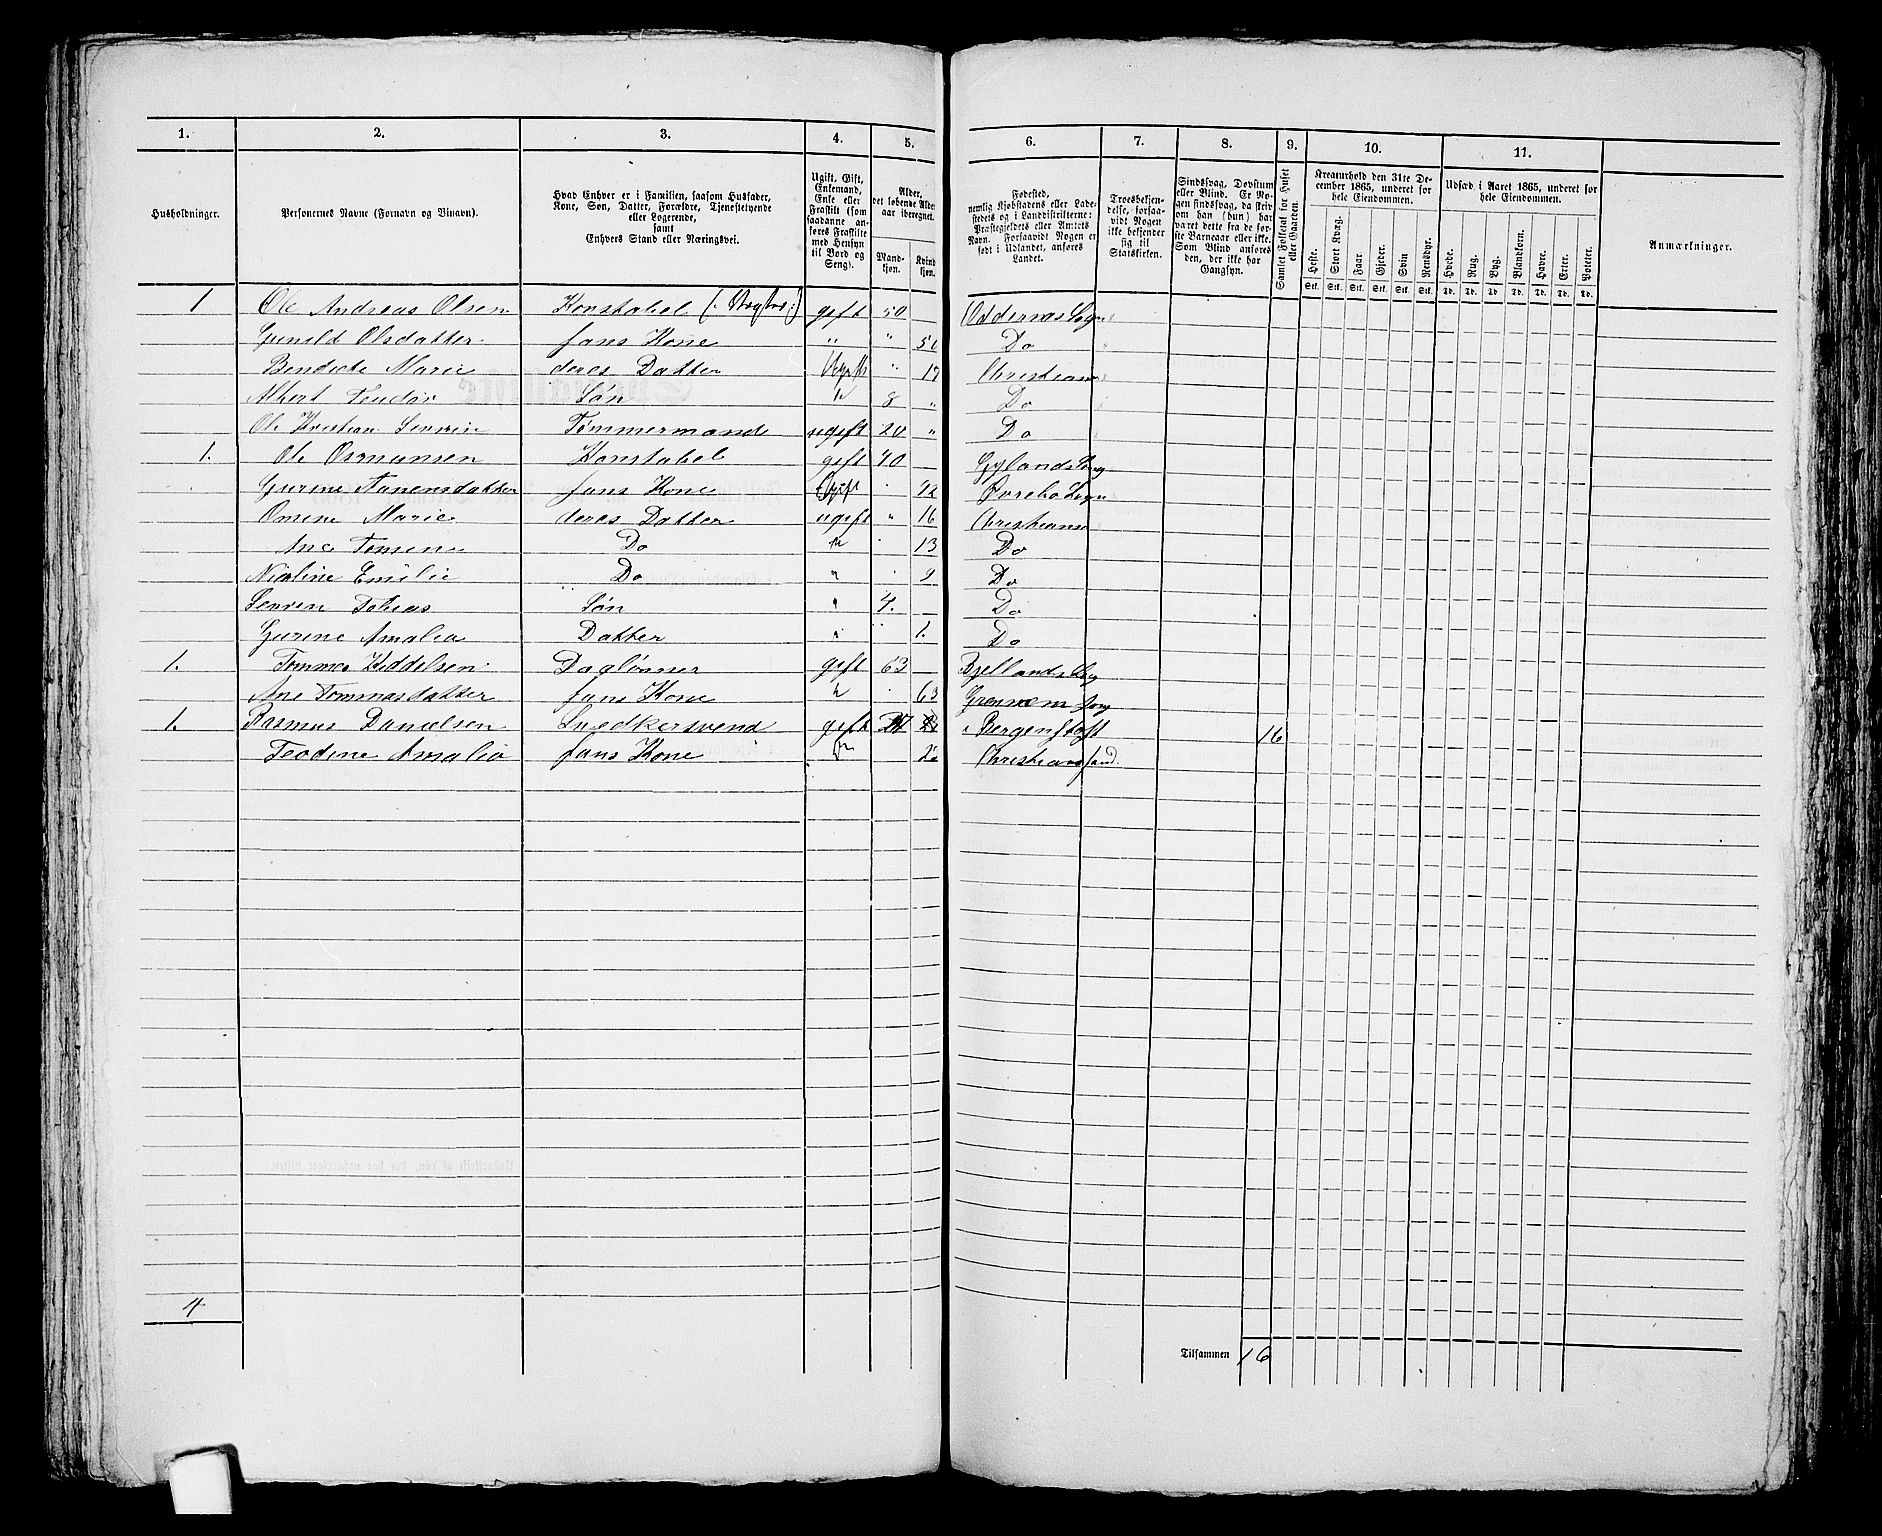 1. 2. 3. 4. 5. 6. 7. 8. 9. 10. 11.
Husholdninger.
Personernes Navne (Fornavn og Binavn).
Hvad Enhver er i Familien, saasom Husfader,
Kone, Søn, Datter, Forældre, Tjenestetyende
eller Logerende,
samt
Enhvers Stand eller Næringsvei.
Ugift, Gift,
Enkemand,
Enke eller
Fraskilt (som
saadanne an-
føres Fraskilte
med Hensyn
til Bord og
Seng).
Alder,
det løbende Alder-
aar iberegnet.
Mand-
kjøn.
Kvind
kjøn.
Fødested,
nemlig Kjøbstadens eller Lade-
stedets og i Landdistrikterne:
Præstegjeldets eller Amtets
Navn. Forsaavidt Nogen er
født i Udlandet, anføres
Landet.
Troesbekjen-
delse, forsaa-
vidt Nogen
ikke bekjender
sig til
Statskirken.
Sindssvag, Døvstum
eller Blind. Er No-
gen sindssvag, da skriv
om han (hun) har
været dette fra de før-
ste Barneaar eller ikke.
Som Blind anføres
den, der ikke har
Gangsyn.
Samlet Folketal for Huset
eller Gaarden.
Kreaturhold den 31te De-
cember 1865, underet for
hele Eiendommen.
Heste. Stort Kvæg. Faar. Gjeder. Svin Rensdyr.
Stk. Stk. Stk. Stk. Stk. Stk.
Udsæd i Aaret 1865, underet for
hele Eiendommen.
Hvede. Rug. Byg. Blandkorn. Havre. Erter. Poteter.
Td. Td. Td. Td. Td. Td. Td.
Anmærkninger.
1 Ole Andreas Olsen Konstabel gift 50 Oddernes Sogn
Gunild Olsdatter hans Kone " " Do
Bendicte Marie deres Datter Ugift " Christians
Albert Teodor Søn " 8 " Do
Ole Kristian Severin Tømmermand ugift 20 " Do
1. Ole Osmunsen Konstabel gift 40 Gylands Sog
Gurine Aanensdatter hans Kone Gift 42 Øvrebo Sogn
Omine Marie deres Datter ugift " 16 Christians
Ane Tomine Do " 13 Do
Nicoline Emilie Do " 9 Do
Severin Tobias Søn " 4. Do
Gurine Amalia Datter " 1. Do
1. Tommes Keddelsen Daglønner gift 63 Bjellands Sog
Ane Tommasdatter hans Kone " 63
1. Rasmus Danielsen Snedkersvend gift Bergen Stift 16
Teodine Amalia hans Kone " Christiansand.
4
Tilsammen 16